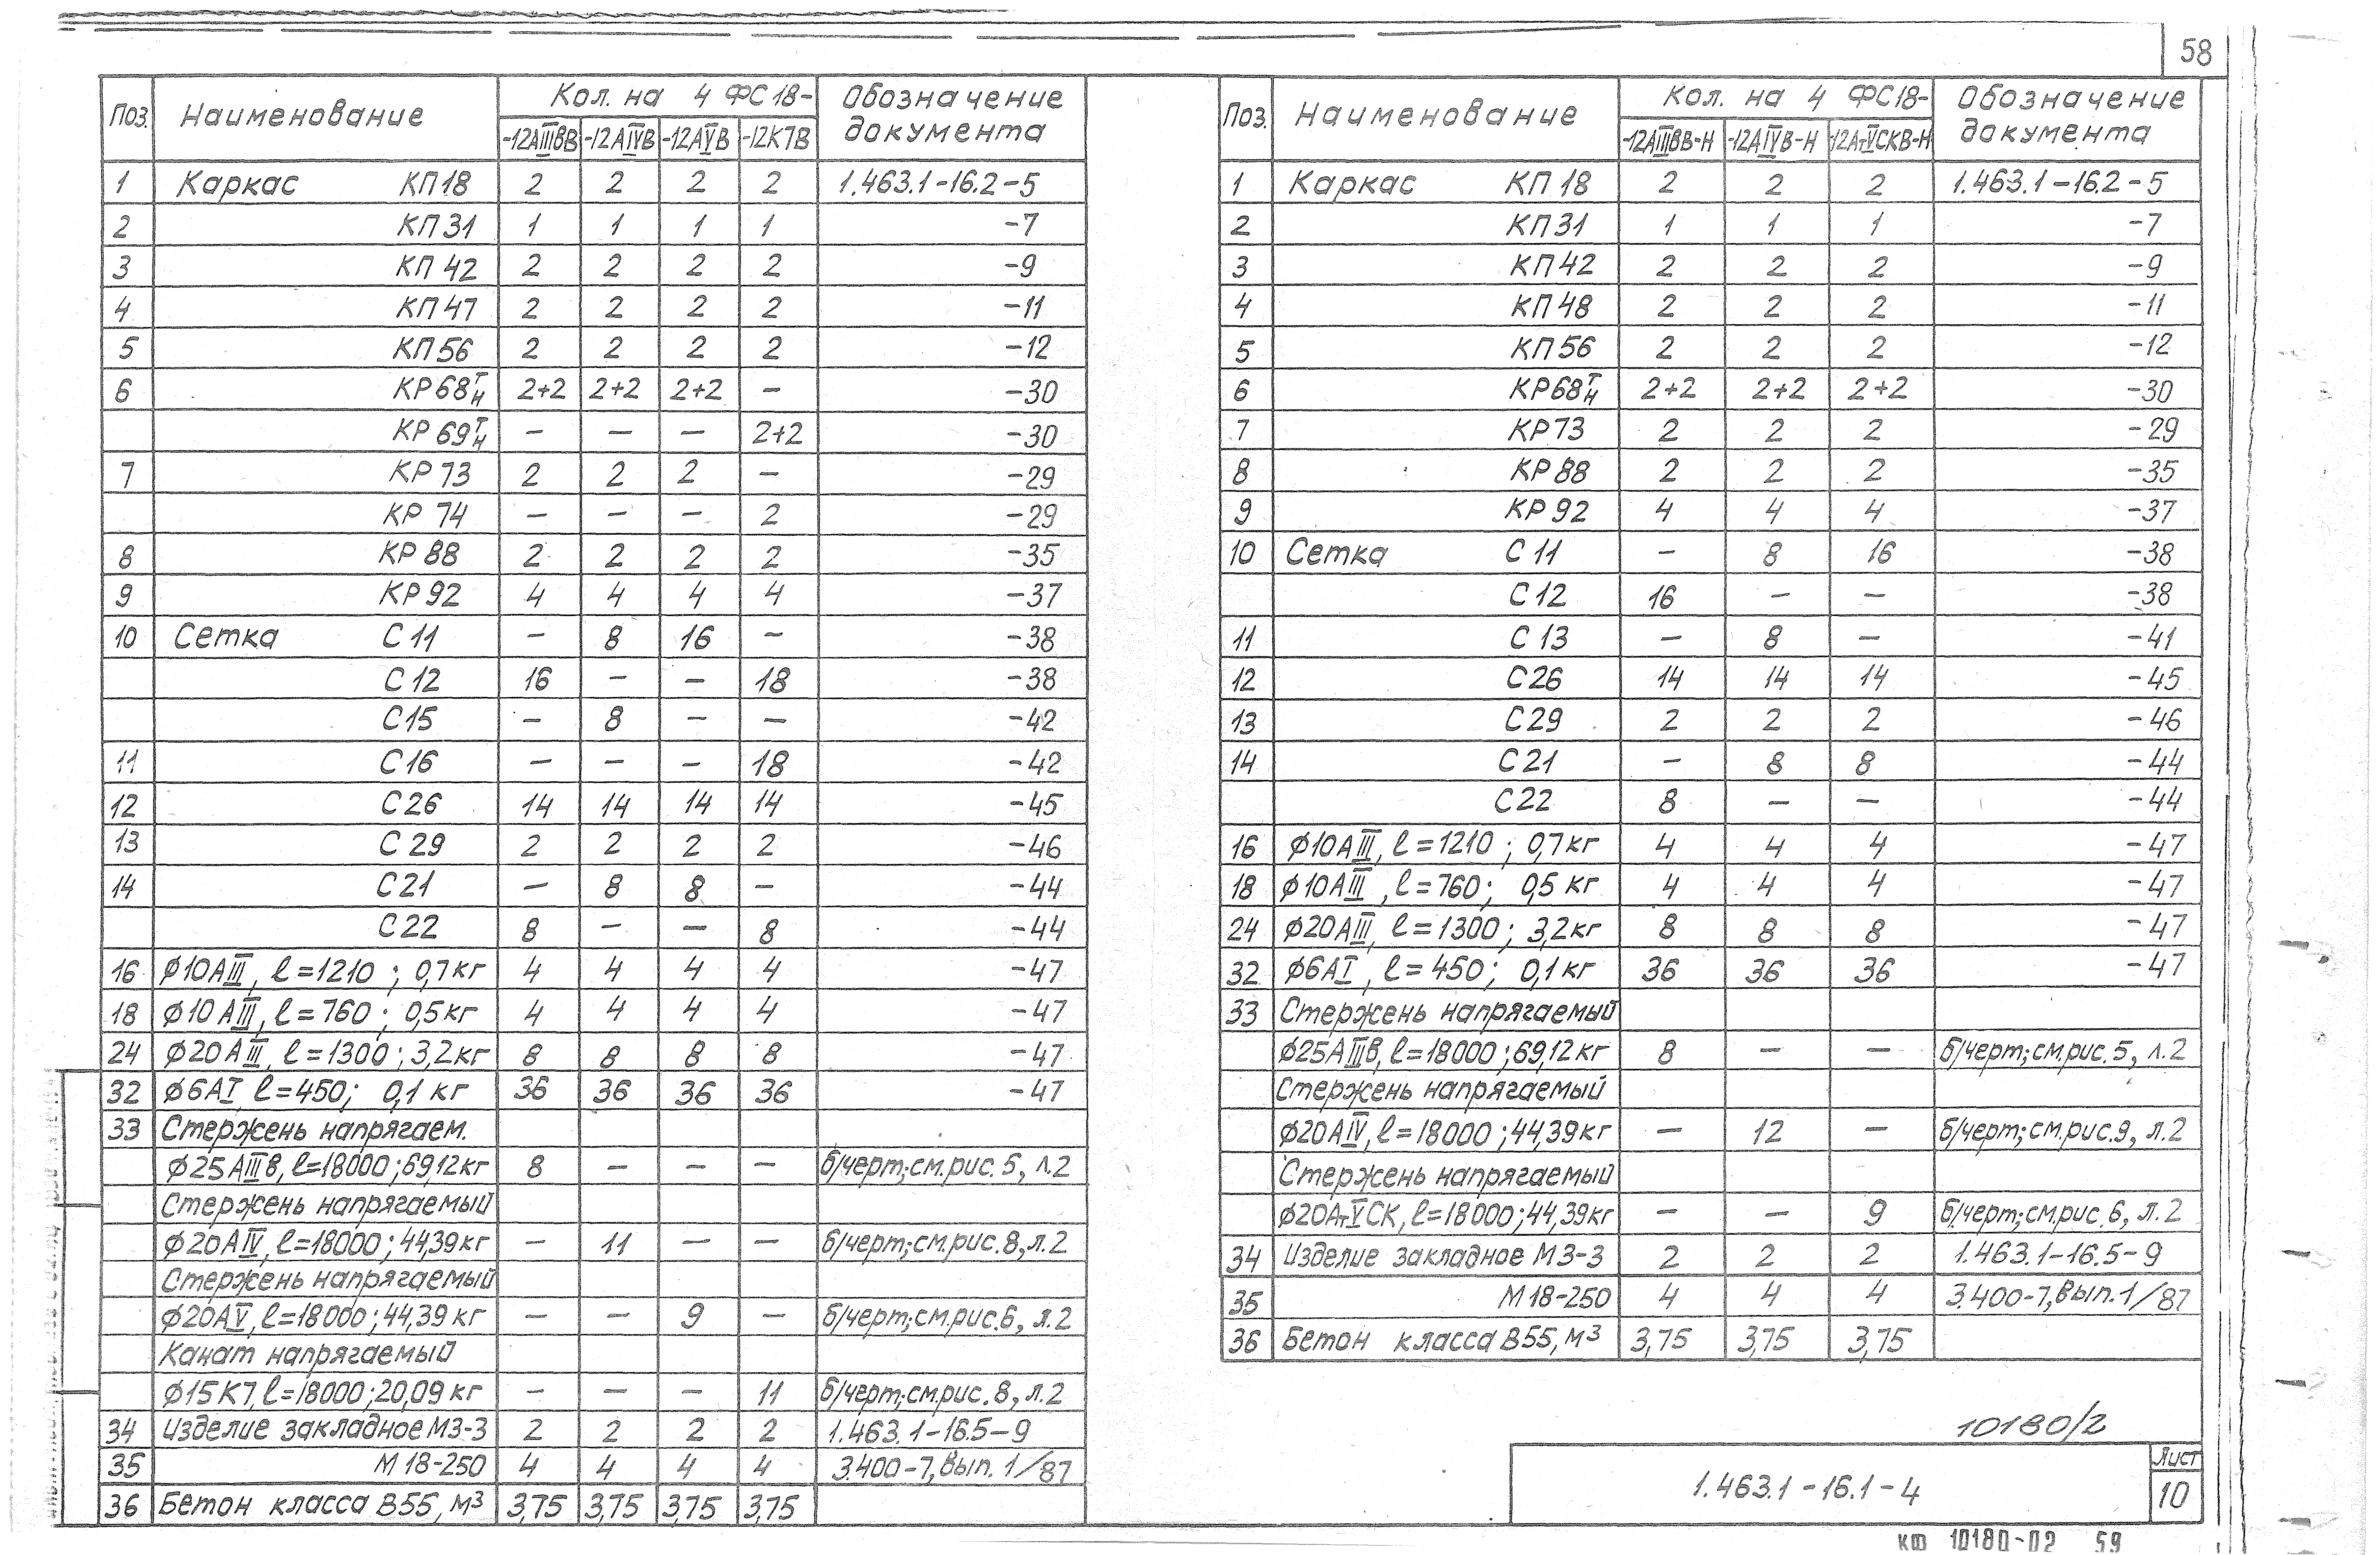 58
Поз. Наименование Кол. на 4 ФС18- Обозначение документа
-12АIIIвВ -12АIVВ -12АVВ -12К7В
1 Каркас КП18 2 2 2 2 1.463.1-16.2-5
2 КП31 1 1 1 1 -7
3 КП42 2 2 2 2 -9
4 КП47 2 2 2 2 -11
5 КП56 2 2 2 2 -12
6 КР68 т/н 2+2 2+2 2+2 — -30
КР69 т/н — — — 2+2 -30
7 КР73 2 2 2 — -29
КР74 — — — 2 -29
8 КР88 2 2 2 2 -35
9 КР92 4 4 4 4 -37
10 Сетка С11 — 8 16 — -38
С12 16 — — 18 -38
С15 — 8 — — -42
11 С16 — — — 18 -42
12 С26 14 14 14 14 -45
13 С29 2 2 2 2 -46
14 С21 — 8 8 — -44
С22 8 — — 8 -44
16 ϕ10АIII, ℓ=1210; 0,7кг 4 4 4 4 -47
18 ϕ10АIII, ℓ=760; 0,5кг 4 4 4 4 -47
24 ϕ20АIII, ℓ=1300; 3,2кг 8 8 8 8 -47
32 ϕ6АI ℓ=450; 0,1 кг 36 36 36 36 -47
33 Стержень напрягаем.
ϕ25АIIIв, ℓ=18000; 69,12кг 8 — — — б/черт; см.рис. 5, л.2
Стержень напрягаемый
ϕ20АIV, ℓ=18000; 44,39кг — 11 — — б/черт; см.рис. 8, л.2
Стержень напрягаемый
ϕ20АV, ℓ=18000; 44,39кг — — 9 — б/черт; см.рис.6, л.2
Канат напрягаемый
ϕ15К7, ℓ=18000; 20,09кг — — — 11 б/черт; см.рис. 8, л.2
34 Изделие закладное М3-3 2 2 2 2 1.463.1-16.5-9
35 М18-250 4 4 4 4 3.400-7, вып. 1/87
36 Бетон класса В55, м³ 3,75 3,75 3,75 3,75
Поз. Наименование Кол. на 4 ФС18- Обозначение документа
-12АIIIвВ-Н -12АIVВ-Н -12АтVСКВ-Н
1 Каркас КП18 2 2 2 1.463.1-16.2-5
2 КП31 1 1 1 -7
3 КП42 2 2 2 -9
4 КП48 2 2 2 -11
5 КП56 2 2 2 -12
6 КР68 т/н 2+2 2+2 2+2 -30
7 КР73 2 2 2 -29
8 КР88 2 2 2 -35
9 КР92 4 4 4 -37
10 Сетка С11 — 8 16 -38
С12 16 — — -38
11 С13 — 8 — -41
12 С26 14 14 14 -45
13 С29 2 2 2 -46
14 С21 — 8 8 -44
С22 8 — — -44
16 ϕ10АIII, ℓ=1210; 0,7кг 4 4 4 -47
18 ϕ10АIII, ℓ=760; 0,5 кг 4 4 4 -47
24 ϕ20АIII, ℓ=1300; 3,2кг 8 8 8 -47
32 ϕ6АI, ℓ=450; 0,1кг 36 36 36 -47
33 Стержень напрягаемый
ϕ25АIIIв, ℓ=18000; 69,12кг 8 — — б/черт; см.рис. 5, л.2
Стержень напрягаемый
ϕ20АIV, ℓ=18000; 44,39кг — 12 — б/черт; см.рис.9, л.2
Стержень напрягаемый
ϕ20АтVСК, ℓ=18000; 44,39кг — — 9 б/черт; см.рис. 6, л.2
34 Изделие закладное М3-3 2 2 2 1.463.1-16.5-9
35 М18-250 4 4 4 3.400-7, вып. 1/87
36 Бетон класса В55, м³ 3,75 3,75 3,75
10180/2
1.463.1-16.1-4 Лист 10
КФ 10180-02 59